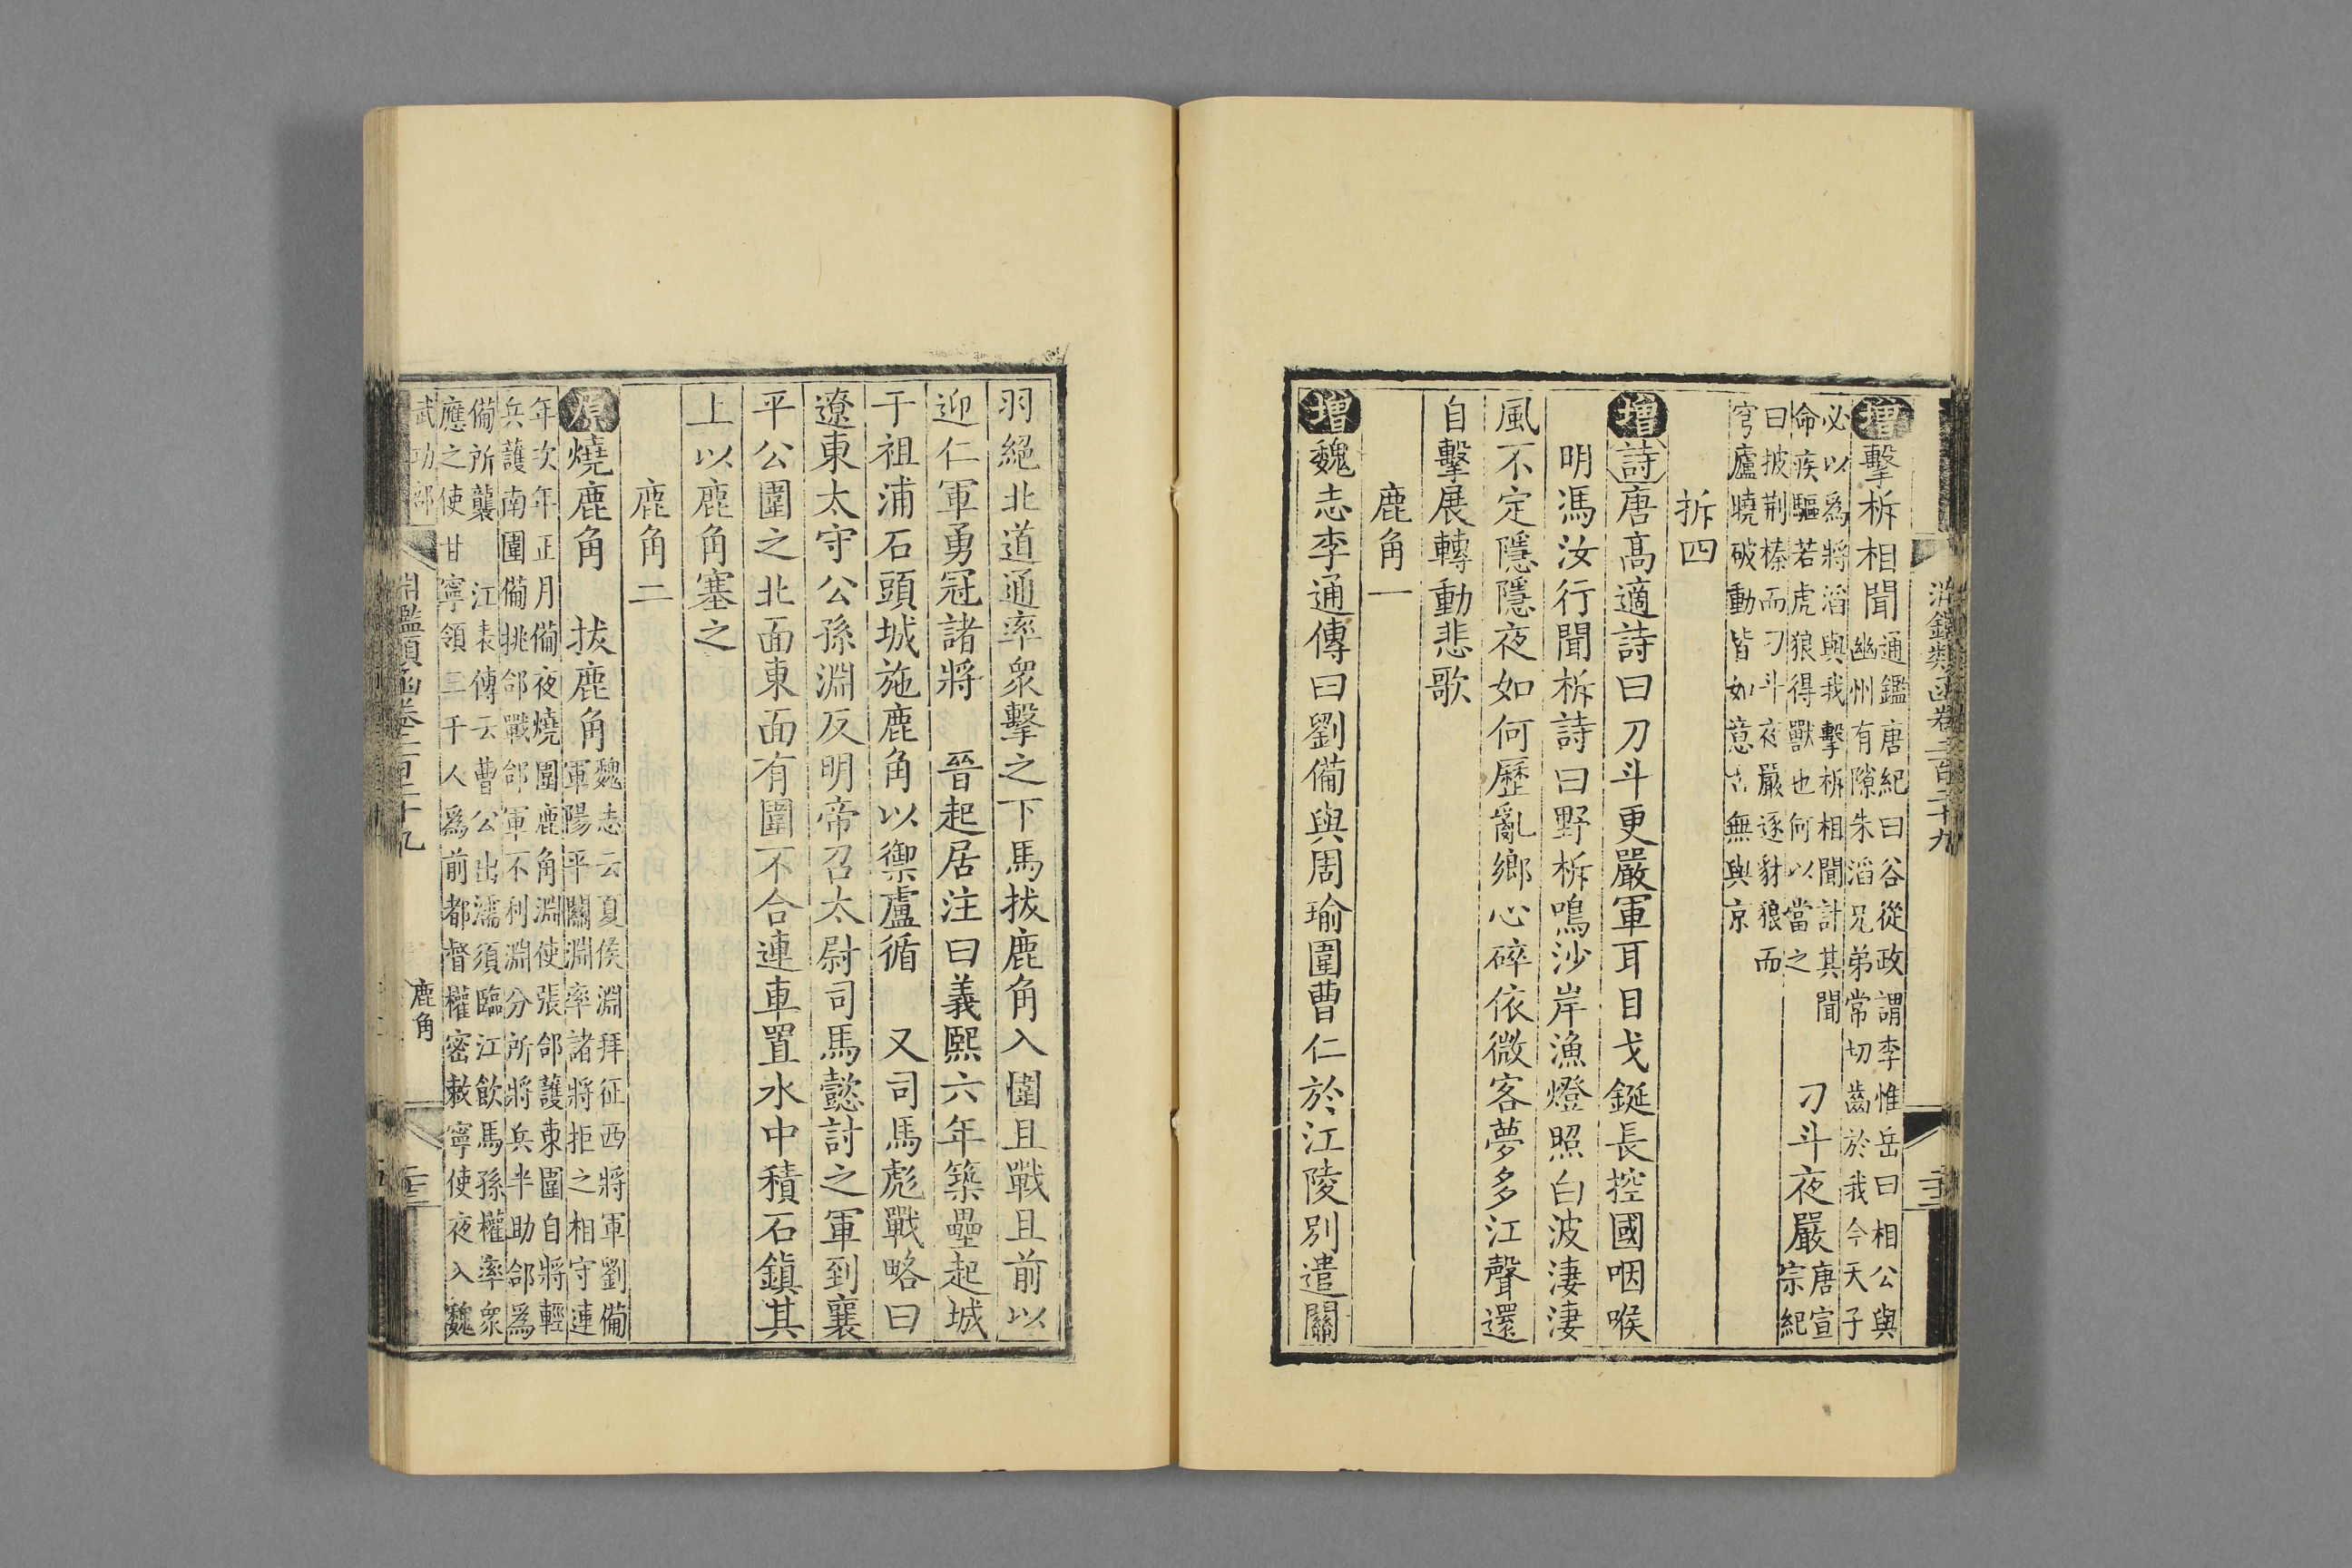 增擊柝相聞通鑑唐紀曰谷從政謂李惟岳曰相公與
幽州有隙朱滔兄弟常切齒於我今天子
必以爲將滔與我擊柝相聞計其聞
命疾驅若虎狼得獸也何以當之
刁斗夜嚴唐宣
宗紀
曰披荆榛而刁斗夜嚴逐豺狼而
穹廬曉破動皆如意古無與京
拆四
增詩唐高適詩曰刀斗更嚴軍耳目戈鋋長控國咽喉
明馮汝行聞柝詩曰野柝鳴沙岸漁燈照白波淒淒
風不定隱隱夜如何歷亂鄉心碎依微客夢多江聲還
自擊展轉動悲歌
鹿角一
增魏志李通傳曰劉備與周瑜圍曹仁於江陵別遣關
羽絕北道通率衆擊之下馬拔鹿角入圍且戰且前以
迎仁軍勇冠諸將 晉起居注曰義熙六年築壘起城
于祖浦石頭城施鹿角以禦盧循 又司馬彪戰略曰
遼東太守公孫淵反明帝召太尉司馬懿討之軍到襄
平公圍之北面東面有圍不合連車置水中積石鎮其
上以鹿角塞之
鹿角二
原燒鹿角 拔鹿角魏志云夏侯淵拜征西將軍劉備
軍陽平關淵率諸將拒之相守連
年次年正月備夜燒圍鹿角淵使張郃護東圍自將輕
兵護南圍備挑郃戰郃軍不利淵分所將兵半助郃爲
備所襲 江表傳云曹公出濡須臨江飲馬孫權率衆
應之使甘寧領三千人爲前都督權密敕寧使夜入魏
淵鑑類函卷二百二十九
鹿角
二十三
武功部